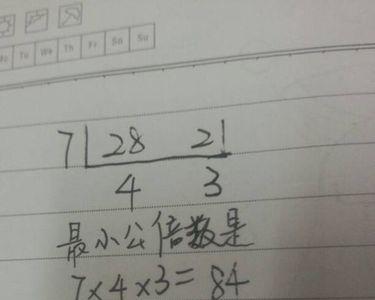 Mo Tu We Th Fr Sa Su
7 28 21
4 3
最小公倍数是
7×4×3=84